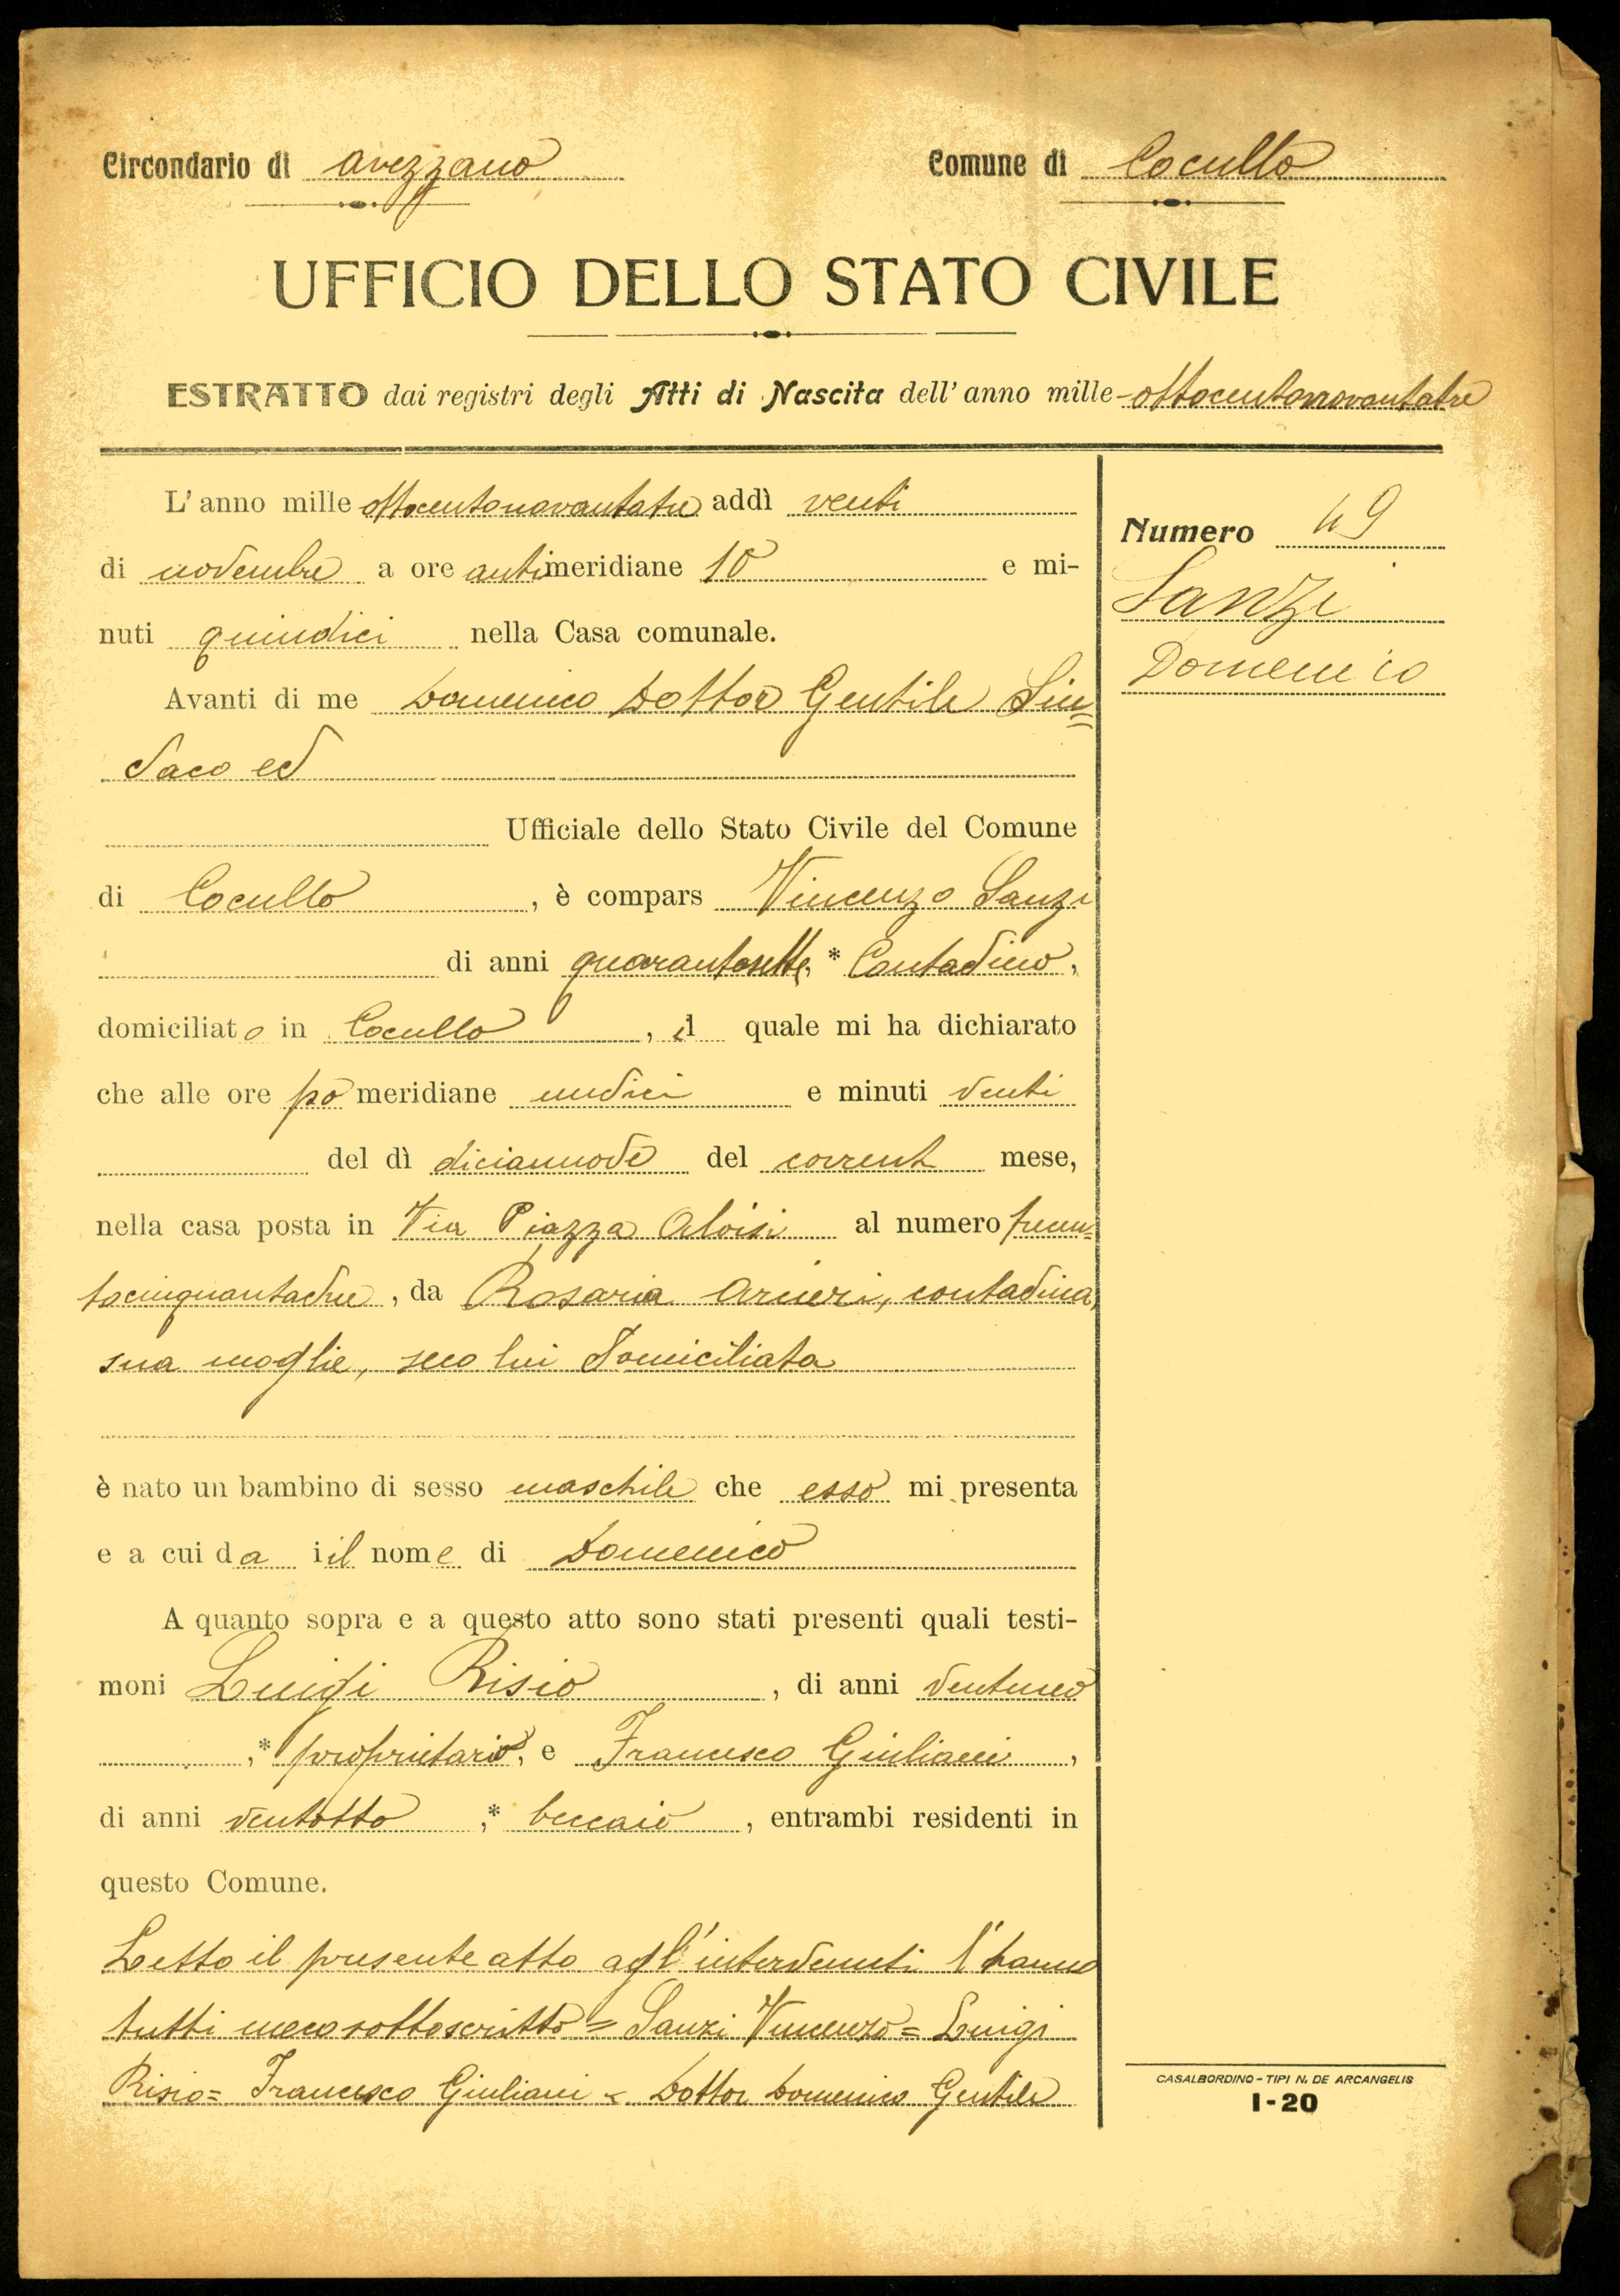 Circondario di Avezzano Comune di Cocullo
UFFICIO DELLO STATO CIVILE
ESTRATTO dai registri degli Atti di Nascita dell' anno mille ottocentonovantatre
L' anno mille ottocentonovantatre addì venti
di novembre a ore antimeridiane 10 e mi-
nuti quindici nella Casa comunale.
Avanti di me Domenico Dottor Gentile Sin=
daco ed
Ufficiale dello Stato Civile del Comune
di Cocullo , è compars Vincenzo Sanzi
di anni quarantasette, * Contadino,
domiciliato in Cocullo , il quale mi ha dichiarato
che alle ore po meridiane undici e minuti venti
del dì diciannove del corrente mese,
nella casa posta in Via Piazza Aloisi al numero trecen=
tocinquantadue, da Rosaria Arcieri, contadina,
sua moglie, seco lui domiciliata
è nato un bambino di sesso maschile che esso mi presenta
e a cui da i il nome di Domenico
A quanto sopra e a questo atto sono stati presenti quali testi-
moni Luigi Risio , di anni ventuno
,* proprietario, e Francesco Giuliani ,
di anni ventotto ,* beccaio , entrambi residenti in
questo Comune.
Letto il presente atto agl' intervenuti l' hanno
tutti meco sottoscritto = Sanzi Vincenzo = Luigi
Risio = Francesco Giuliani = Dottor Domenico Gentile
Numero 49
Sanzi
Domenico
CASALBORDINO - TIPI N. DE ARCANGELIS
I-20